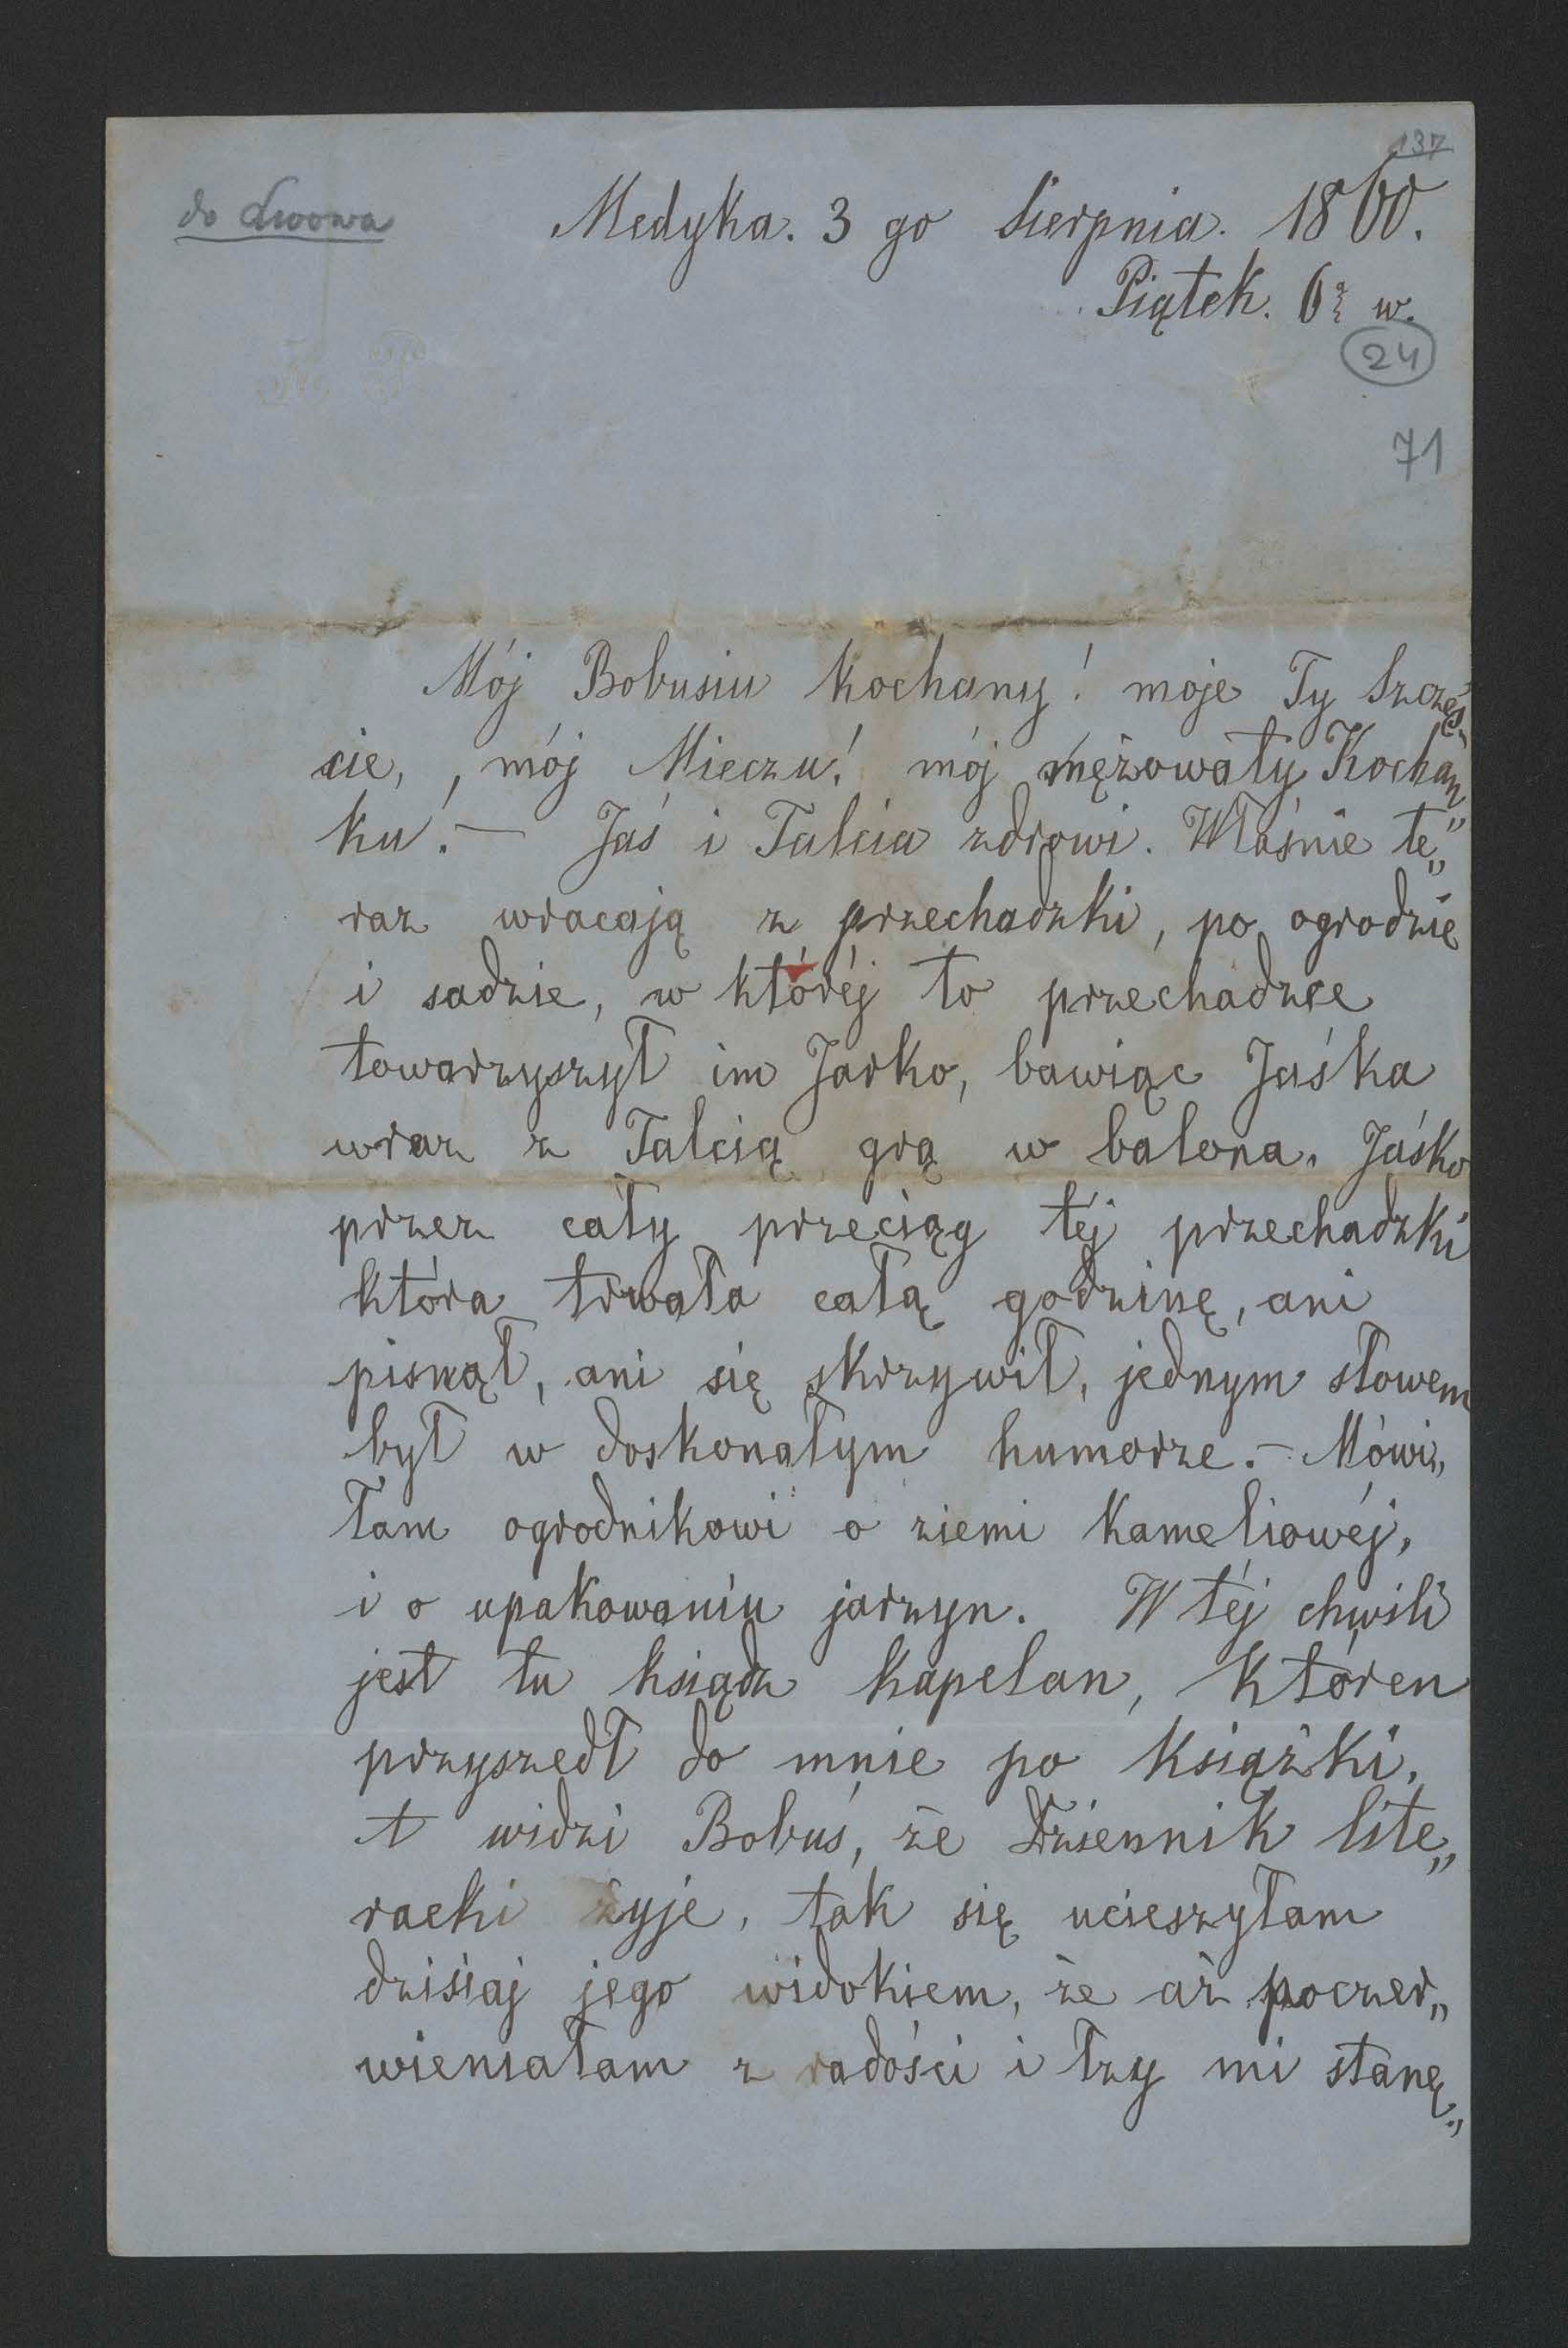 137
do Lwowa
Medyka. 3 go Sierpnia. 1860.
Piątek. 6 w.
24
71
Mój Bobusiu kochany! moje Ty Szczęś„
cie, , mój Mieczu! mój mężowaty Kochan„
ku! — Jaś i Talcia zdrowi. Właśnie te„
raz wracają z przechadzki, po ogrodzie
i sadzie, w któréj to przechadzce
towarzyszył im Jarko, bawiąc Jaśka
wraz z Talcią grą w balona. Jaśko
przez cały przeciąg téj przechadzki
która trwała całą godzinę, ani
pisnął, ani się skrzywił, jednym słowem
był w doskonałym humorze. — Mówi„
łam ogrodnikowi o ziemi kameliowéj,
i o upakowaniu jarzyn. W téj chwili
jest tu ksiądz kapelan, któren
przyszedł do mnie po książki.
A widzi Bobuś, że Dziennik lite„
racki żyje, tak się ucieszyłam
dzisiaj jego widokiem, że aż poczer„
wieniałam z radości i łzy mi stanę„